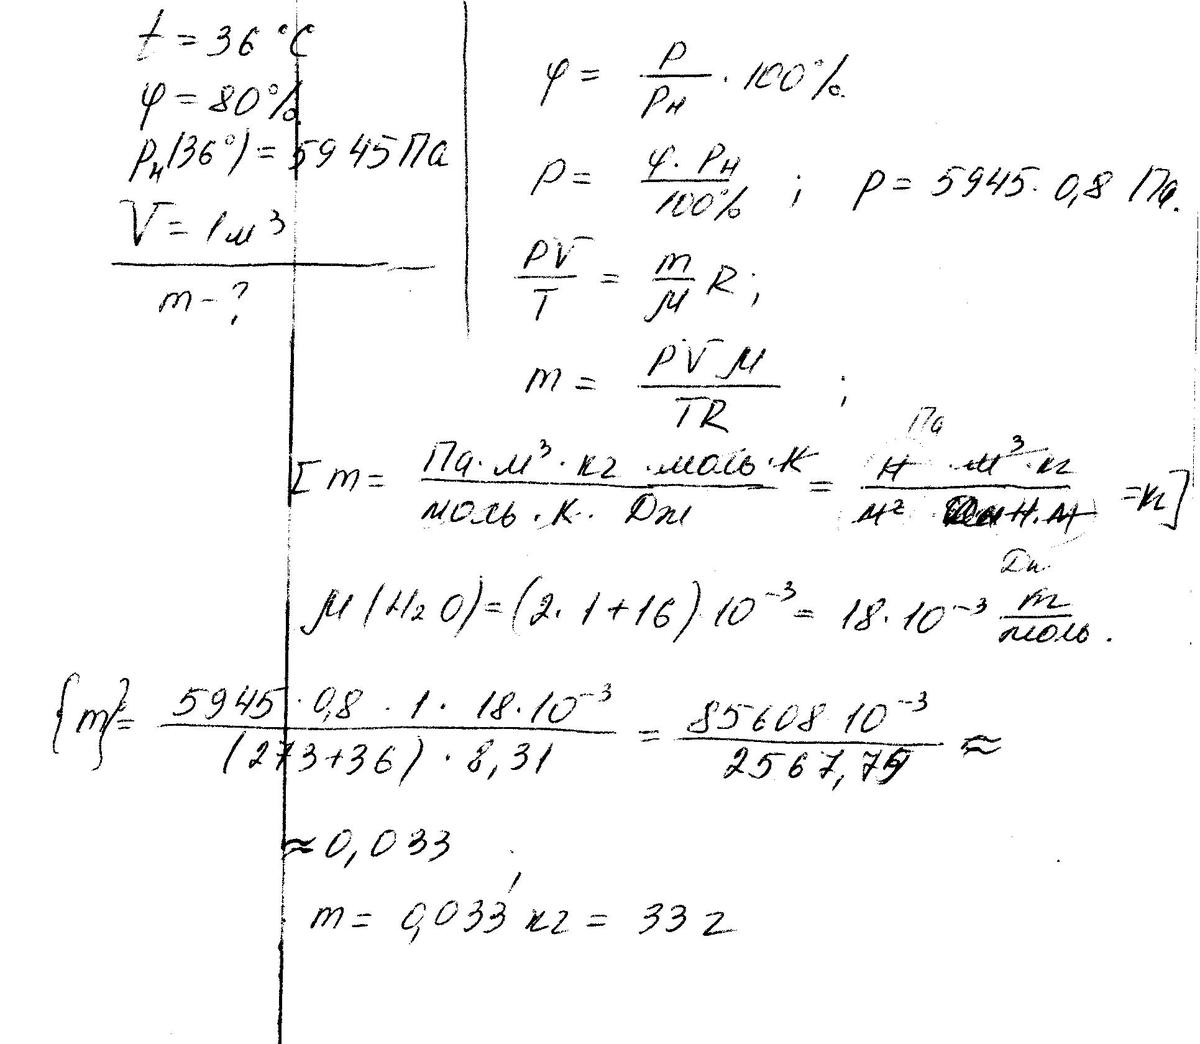 t = 36 °C
φ = 80%
Pн(36°) = 5945 Па
V = 1 м³
m - ?
φ = P/Pн · 100%
P = φ · Pн/100% ; P = 5945 · 0,8 Па.
PV/T = m/M R;
m = PVM/TR ;
Па
[m = Па · м³ · кг · моль · К/моль · К · Дж = Н · м³ · кг/м² Н · м = к]
M(H₂O) = (2 · 1 + 16) 10⁻³ = 18 · 10⁻³ m/моль.
{m} = 5945 · 0,8 · 1 · 18 · 10⁻³/(273 + 36) · 8,31 = 85608 10⁻³/2567,79 ≈
≈ 0,033
m = 0,033 кг = 33 г